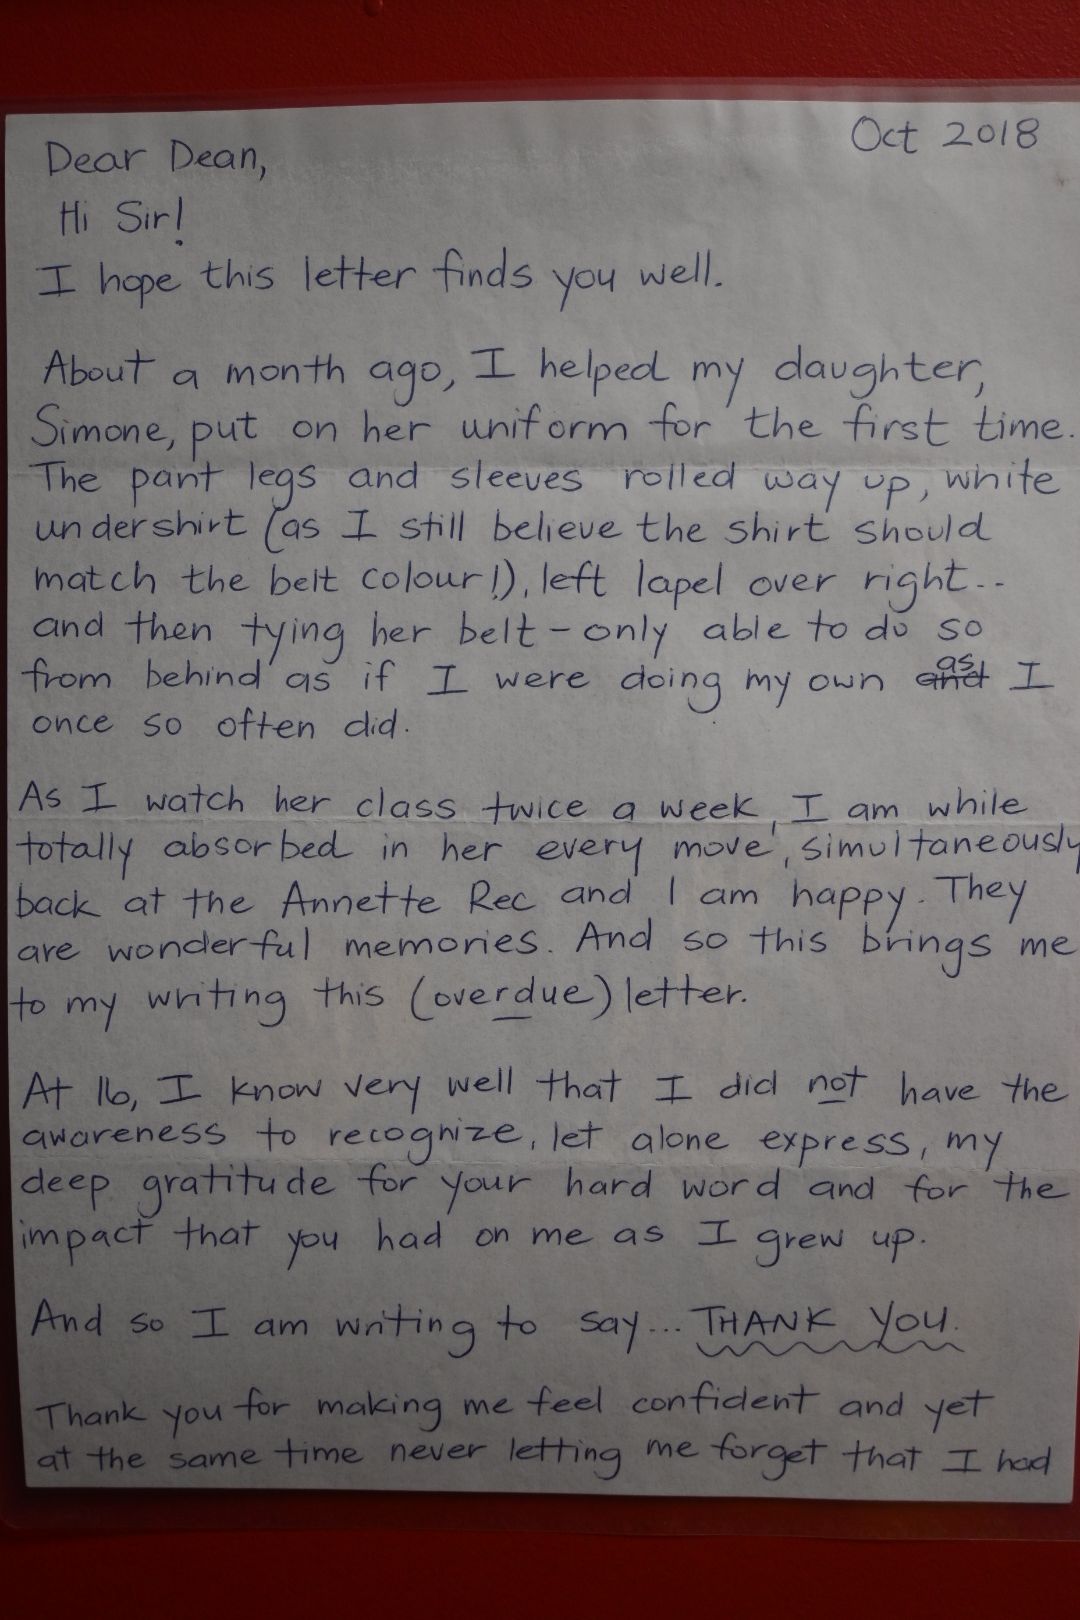 Oct 2018
Dear Dean,
Hi Sir!
I hope this letter finds you well.
About a month ago, I helped my daughter,
Simone, put on her uniform for the first time.
The pant legs and sleeves rolled way up, white
undershirt (as I still believe the shirt should
match the belt colour!), left lapel over right..
and then tying her belt - only able to do so
from behind as if I were doing my own and as I
once so often did.
As I watch her class twice a week, I am while
totally absorbed in her every move, simultaneously
back at the Annette Rec and I am happy. They
are wonderful memories. And so this brings me
to my writing this (overdue) letter.
At 16, I know very well that I did not have the
awareness to recognize, let alone express, my
deep gratitude for your hard word and for the
impact that you had on me as I grew up.
And so I am writing to say... THANK YOU.
Thank you for making me feel confident and yet
at the same time never letting me forget that I had